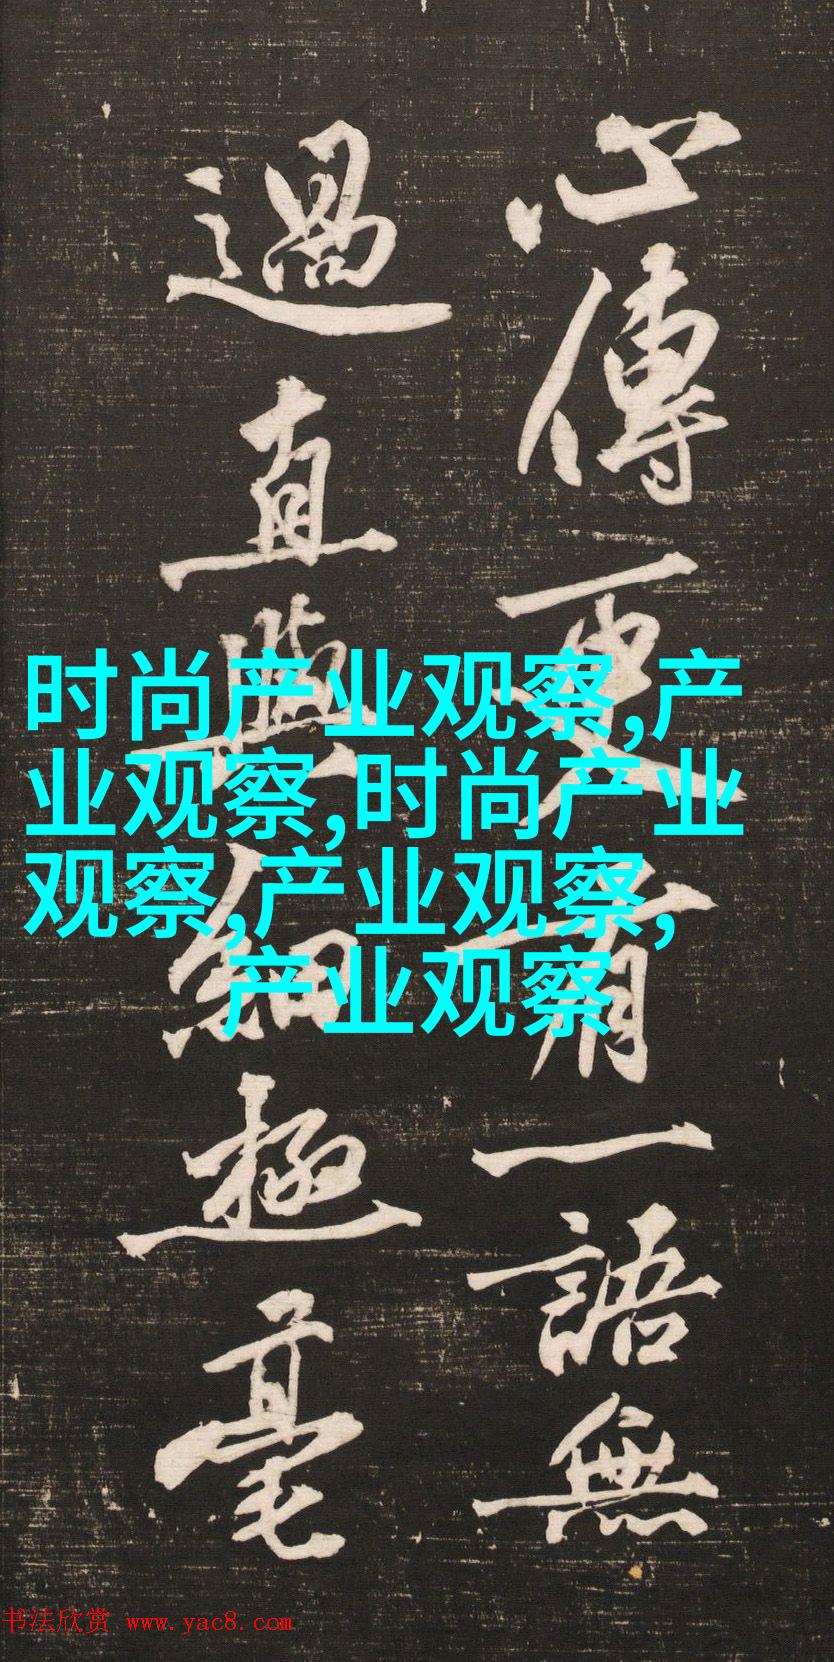 心傳更有一語無
過直與細極毫
时尚产业观察,产
业观察,时尚产业
观察,产业观察,
产业观察
书法欣赏 www.yac8.com